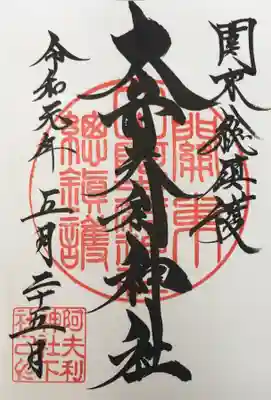 関東総鎮護
大山阿夫利神社
令和元年 五月二十五日
關東
總鎮護
阿夫利
神社下
社之印